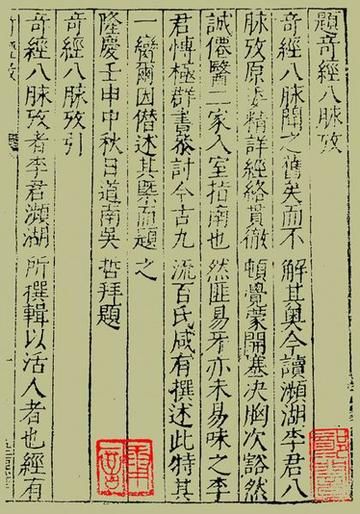 題竒經八脉攷
竒經八脉聞之舊矣而不解其奥今讀瀕湖李君八
脉攷原委精詳經絡貫徹頓覺蒙開塞决胸次豁然
誠僊醫二家入室指南也然匪易牙亦未易味之李
君愽極群書叅討今古九流百氏咸有撰述此特其
一臠爾因僣述其槩而題之
隆慶壬申中秋日道南吳哲拜題
竒經八脉攷引
竒經八脉攷者李君瀕湖所撰輯以活人者也經有